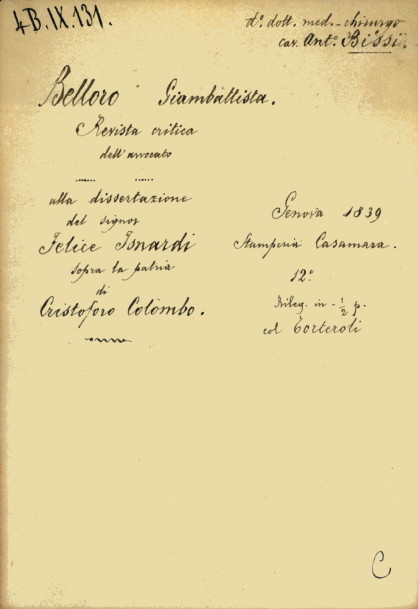 4B.IX.131.
d.º dott. med. - chirurgo
cav. Ant.º Bissi.
Belloro Giamballista.
Revista critica
dell'avvocato
...... ......
alla dissertazione
del signor
Felice Isnardi
sopra la patria
di
Cristoforo Colombo.
Genova 1839
Stamperia Casamara.
12.º
Rileg. in - ½ p.
col Torteroli
C